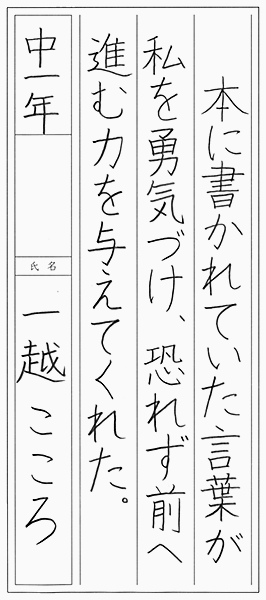 本に書かれていた言葉が
私を勇気づけ、恐れず前へ
進む力を与えてくれた。
中一年
氏名
一越こころ